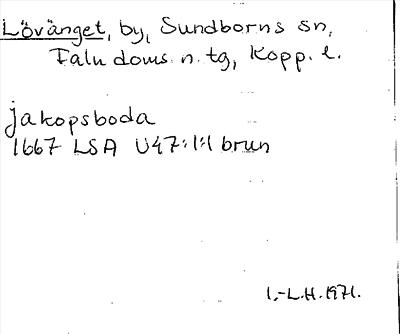 Lövänget, by, Sundborns sn,
Falu doms. n. tg, Kopp. l.
jakopsboda
1667 LSA U47:1:1 brun
I.-L.H. 1971.